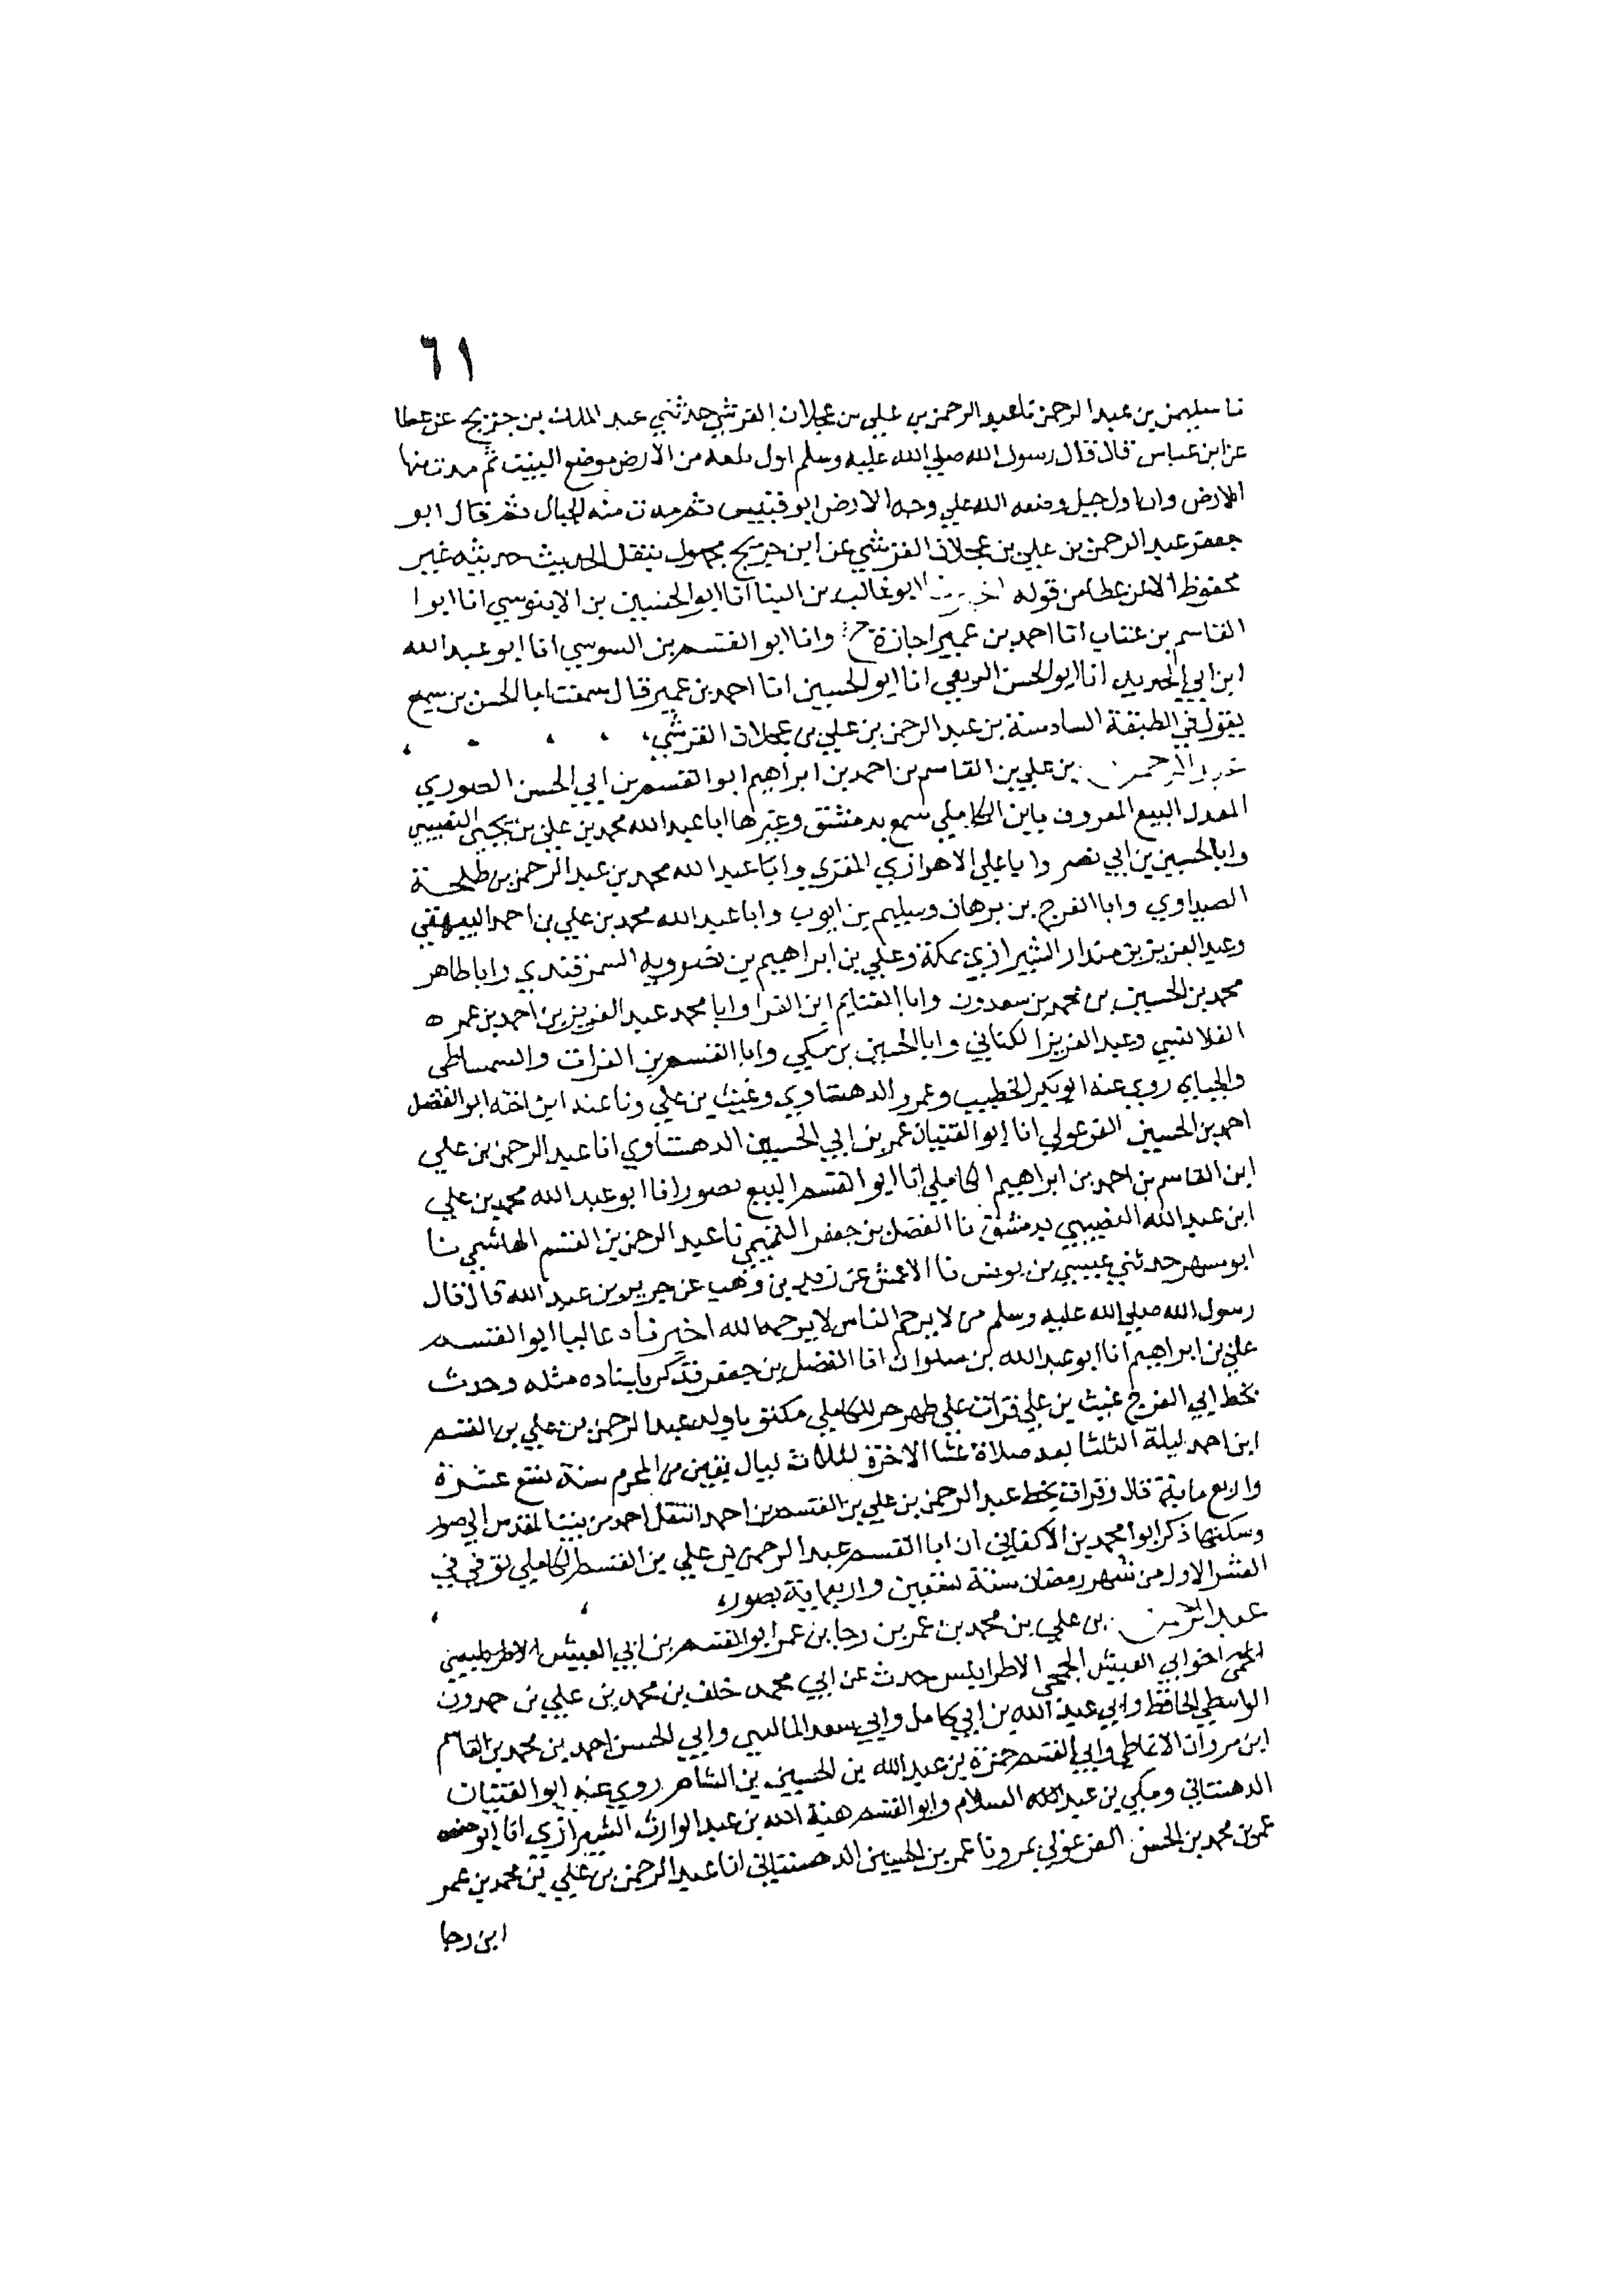 ٦١
نا سليمن بن عبد الرحمن نا عبد الرحمن بن علي بن عجلان القرشي حدثني عبد الملك بن جريج عن عطا
عن ابن عباس قال قال رسول الله صلي الله عليه وسلم اول بلعه من الارض موضع البيت ثم مدت منها
الارض وان اول جبل وضعه الله علي وجه الارض ابو قبيس ثم مدت منه الجبال ثم قال ابو
جعفر عبد الرحمن بن علي بن عجلان القرشي عن ابن جريج مجهول بنقل الحديث حديثه غير
محفوظ الا عن عطا من قوله اخبرنا ابو غالب بن البنا انا ابو الحسين بن الابنوسي انا ابو ا
القاسم بن عتاب انا احمد بن عمير اجازة ح وانا ابو القسم بن السوسي انا ابو عبد الله
ابن ابي الحديد انا ابو الحسن الربعي انا ابو الحسين انا احمد بن عمير قال سمعت ابا الحسن بن سميع
يقول في الطبقة السادسة بن عبد الرحمن بن علي بن عجلان القرشي
عبد الرحمن بن علي بن القاسم بن احمد بن ابراهيم ابو القسم بن ابي الحسن الصوري
المعدل البيع المعروف بابن الكاملي سمع بدمشق وغيرها ابا عبد الله محمد بن علي بن يحيي النصيبي
وابا الحسين بن ابي نصر وابا علي الاهوازي المقري وابا عبد الله محمد بن عبد الرحمن بن طلحة
الصيداوي وابا الفرج بن برهان وسليم بن ايوب وابا عبد الله محمد بن علي بن احمد البيهقي
وعبد العزيز بن بندار الشيرازي بمكة وعلي بن ابراهيم بن نصرويه السمرقندي وابا طاهر
محمد بن الحسين بن محمد بن سعدون وابا الغنايم ابن الفرا وابا محمد عبد العزيز بن احمد بن عمر
وعبد العزيز الكتاني وابا الحسين بن مكي وابا القسم بن الفرات والسمساطي
روي عنه ابو بكر الخطيب وعمر الدهستاوي وغيث بن علي ونا عنه ابن اخته ابو الفضل
احمد بن الحسين انا ابو الفتيان عمر بن ابي الحسين الدهستاوي انا عبد الرحمن بن علي
ابن القاسم بن احمد بن ابراهيم الكاملي انا ابو القسم البيع بصور انا ابو عبد الله محمد بن علي
ابن عبد الله النصيبي بدمشق نا الفضل بن جعفر التميمي نا عبد الرحمن بن القسم الهاشمي نا
ابو مسهر حدثني عيسي بن يونس نا الاعمش عن زيد بن وهب عن جرير بن عبد الله قال قال
رسول الله صلي الله عليه وسلم من لا يرحم الناس لا يرحمه الله اخبرناه عاليا ابو القسم
علي بن ابراهيم انا ابو عبد الله بن سلوان انا الفضل بن جعفر فذكر باسناده مثله وجدت
بخط ابي الفرج غيث بن علي قرات علي ظهر جز للكاملي مكتوبا ولد عبد الرحمن بن علي بن القسم
ابن احمد ليلة الثلثا بعد صلاة عشا الاخرة لثلاث ليال بقين من المحرم سنة تسع عشرة
واربع ماية قال وقرات بخط عبد الرحمن بن علي بن القسم بن احمد انتقل احمد من بيت المقدس الي صور
وسكنها ذكر ابو محمد بن الاكفاني ان ابا القسم عبد الرحمن بن علي بن القسم الكاملي توفي في
العشر الاول من شهر رمضان سنة تسعين واربعماية بصور
عبد الرحمن بن علي بن محمد بن عمر بن رجا بن عمر ابو القسم بن ابي العيش الاطرابلسي
اخو ابي العيش الجمحي الاطرابلس حدث عن ابي محمد خلف بن محمد بن علي بن حمدون
الواسطي الحافظ وابي عبد الله بن ابي كامل وابي سعد الماليني وابي الحسن احمد بن محمد بن القاسم
ابن مروان الانماطي وابي القسم حمزة بن عبد الله بن الحسين بن الشام روي عنه ابو الفتيان
الدهستاني ومكي بن عبد السلام وابو القسم هبة الله بن عبد الوارث الشيرازي انا ابو حفص
عمر بن محمد بن الحسن الفرغولي بمرو نا عمر بن الحسين الدهستاني انا عبد الرحمن بن علي بن محمد بن عمر
ابن رجا